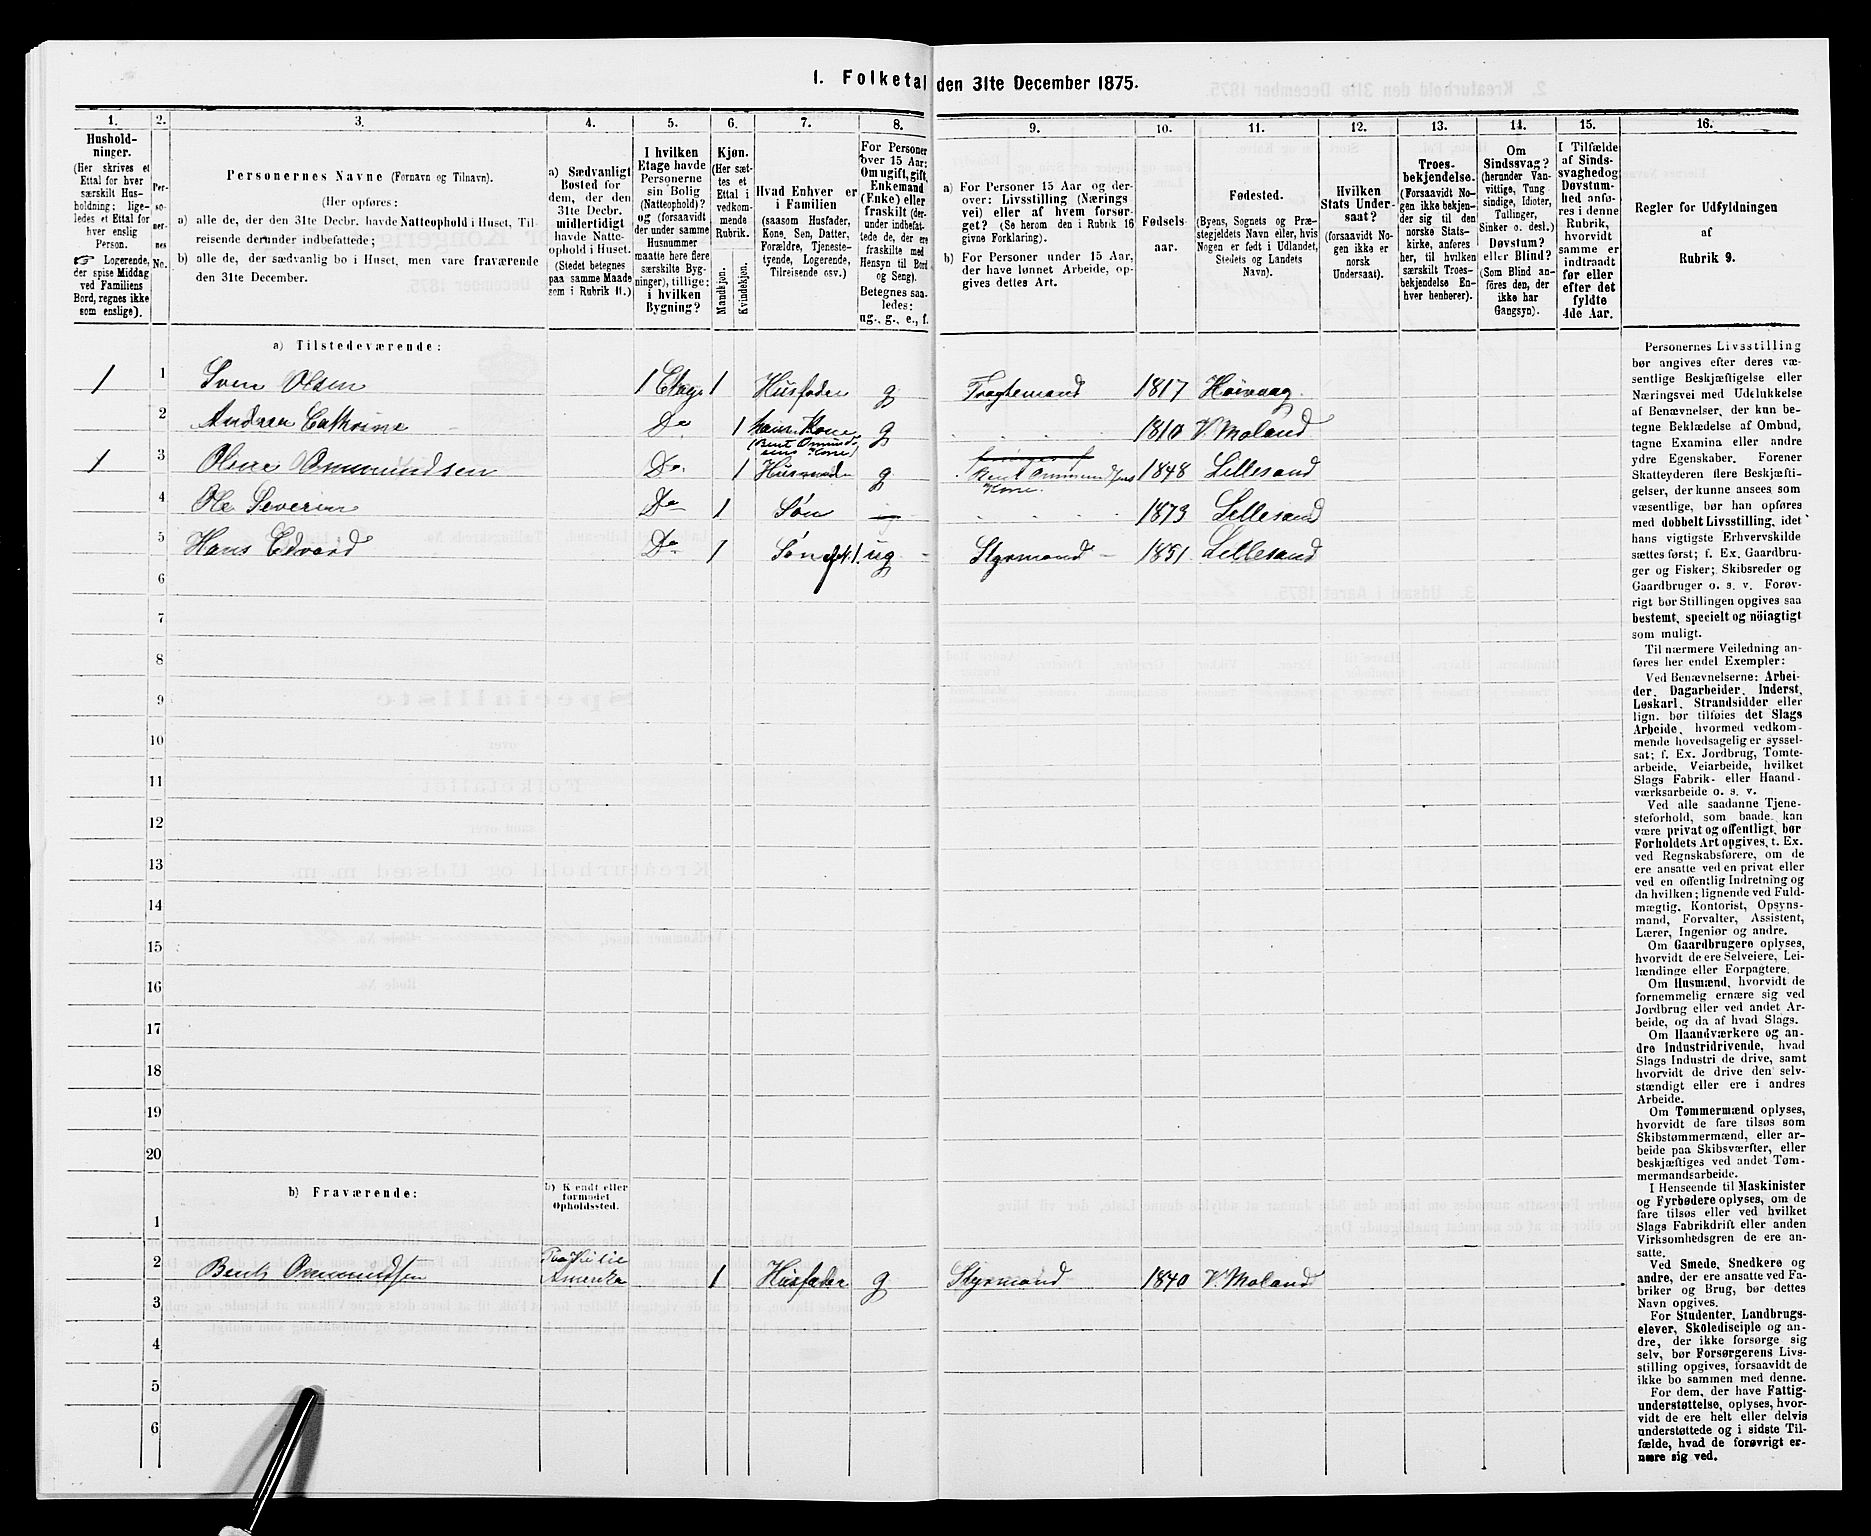 1. Folketal den 31te December 1875.
1. 2. 3. 4. 5. 6. 7. 8. 9. 10. 11. 12. 13. 14. 15. 16.
Hushold-
ninger.
(Her skrives et
Ettal for hver
særskilt Hus-
holdning; lige-
ledes et Ettal for
hver enslig
Person.
☞ Logerende,
der spise Middag
ved Familiens
Bord, regnes ikke
som enslige).
Per-
so-
ner-
nes
No.
Personernes Navne (Fornavn og Tilnavn).
(Her opføres:
a) alle de, der den 31te Decbr. havde Natteophold i Huset, Til-
reisende derunder indbefattede;
b) alle de, der sædvanlig bo i Huset, men vare fraværende
den 31te December.
a) Sædvanligt
Bosted for
dem, der den
31te Decbr.
midlertidigt
havde Natte-
ophold i Huset.
(Stedet betegnes
paa samme Maade
som i Rubrik 11.)
I hvilken
Etage havde
Personerne
sin Bolig
(Natteophold)?
og (forsaavidt
der under samme
Husnummer
maatte høre flere
særskilte Byg-
ninger), tillige:
i hvilken
Bygning?
Kjøn.
(Her sæt-
tes et
Ettal i
vedkom-
mende
Rubrik.
Mandkjøn.
Kvindekjøn.
Hvad Enhver er
i Familien
(saasom Husfader,
Kone, Søn, Datter,
Forældre, Tjeneste-
tyende, Logerende,
Tilreisende osv.)
For Personer
over 15 Aar:
Om ugift, gift,
Enkemand
(Enke) eller
fraskilt (der-
under indbefat-
tede de, der ere
fraskilte med
Hensyn til Bord
og Seng).
Betegnes saa-
ledes:
ug., g., e., f.
a) For Personer 15 Aar og der-
over: Livsstilling (Nærings
vei) eller af hvem forsør-
get? (Se herom den i Rubrik 16
givne Forklaring).
b) For Personer under 15 Aar,
der have lønnet Arbeide, op-
gives dettes Art.
Fødsels-
aar.
Fødested.
(Byens, Sognets og Præ-
stegjeldets Navn eller, hvis
Nogen er født i Udlandet,
Stedets og Landets
Navn).
Hvilken
Stats Under-
saat?
(forsaavidt No-
gen ikke er
norsk
Undersaat).
Troes-
bekjendelse.
(Forsaavidt No-
gen ikke bekjen-
der sig til den
norske Stats-
kirke, anføres
her, til hvilken
særskilt Troes-
bekjendelse En-
hver henhører).
Om
Sindssvag?
(herunder Van-
vittige, Tung
sindige, Idioter,
Tullinger,
Sinker o. desl.)
Døvstum?
eller Blind?
(Som Blind an-
føres den, der
ikke har
Gangsyn).
I Tilfælde
af Sinds-
svaghed og
Døvstum-
hed anfø-
res i denne
Rubrik,
hvorvidt
samme er
indtraadt
før eller
efter det
fyldte
4de Aar.
Regler for Udfyldningen
af
Rubrik 9.
a) Tilstedeværende:
1 1 Sven Olsen 1 Etage 1 Husfader g Fragtemand 1817 Høivaag
2 Andrea Cathrine Do 1 hans Kone g 1810 V. Moland
(Bent Ommunds
ens Kone)
1 3 Oline Ommundsen Do 1 Husmoder g Bent Ommundsens 1848 Lillesand
Kone.
4 Ole Severin Do 1 Søn 1873 Lillesand
5 Hans Edvard Do 1 Søn af No. 1. ug Styrmand 1851 Lillesand
6
7
8
9
10
11
12
13
14
15
16
17
18
19
20
b) Fraværende:
b) Kendt eller
formodet
Opholdssted.
1
2 Bent Ommundsen Amerika 1 Husfader g Styrmand 1840 V. Moland
3
4
5
6
Personernes Livsstilling
bør angives efter deres væ-
sentlige Beskjæftigelse eller
Næringsvei med Udelukkelse
af Benævnelser, der kun be-
tegne Beklædelse af Ombud,
tagne Examina eller andre
ydre Egenskaber. Forener
Skatteyderen flere Beskjæfti-
gelser, der kunne ansees som
væsentlige, bør han opføres
med dobbelt Livsstilling, idet
hans vigtigste Erhvervskilde
sættes først; f. Ex. Gaardbru-
ger og Fisker; Skibsreder og
Gaardbruger o. s. v. Forøv-
rigt bør Stillingen opgives saa
bestemt, specielt og nøiagtigt
som muligt.
Til nærmere Veiledning an-
føres her endel Exempler:
Ved Benævnelserne: Arbei-
der, Dagarbeider, Inderst,
Løskarl, Strandsidder eller
lign. bør tilføies det Slags
Arbeide, hvormed vedkom-
mende hovedsagelig er syssel-
sat; f. Ex. Jordbrug, Tomte-
arbeide, Veiarbeide, hvilket
Slags Fabrik- eller Haand-
værksarbeide o. s. v.
Ved alle saadanne Tjene-
steforhold, som baade kan
være privat og offentligt, bør
Forholdets Art opgives, t. Ex.
ved Regnskabsførere, om de
ere ansatte ved en privat eller
ved en offentlig Indretning og
da hvilken; lignende ved Fuld-
mægtig, Kontorist, Opsyns-
mand, Forvalter, Assistent,
Lærer, Ingeniør og andre.
Om Gaardbrugere oplyses,
hvorvidt de ere Selveiere, Lei-
lændinge eller Forpagtere.
Om Husmænd, hvorvidt de
fornemmelig ernære sig ved
Jordbrug eller ved andet Ar-
beide, og da af hvad Slags.
Om Haandværkere og an-
dre Industridrivende, hvad
Slags Industri de drive, samt
hvorvidt de drive den selv-
stændigt eller ere i andres
Arbeide.
Om Tømmermænd oplyses,
hvorvidt de fare tilsøs som
Skibstømmermænd, eller ar-
beide paa Skibsværfter, eller
beskjæftiges ved andet Tøm-
mermandsarbeide.
I Henseende til Maskinister
og Fyrbødere oplyses, om de
fare tilsøs eller ved hvilket
Slags Fabrikdrift eller anden
Virksomhedsgren de ere an-
satte.
Ved Smede, Snedkere og
andre, der ere ansatte ved Fa-
briker og Brug, bør dettes
Navn opgives.
For Studenter, Landbrugs-
elever, Skoledisciple og an-
dre, der ikke forsørge sig
selv, bør Forsørgerens Livs-
stilling opgives, forsaavidt de
ikke bo sammen med denne.
For dem, der have Fattig-
understøttelse, oplyses, hvor-
vidt de ere helt eller delvis
understøttede og i sidste Til-
fælde, hvad de forøvrigt er-
nære sig ved.